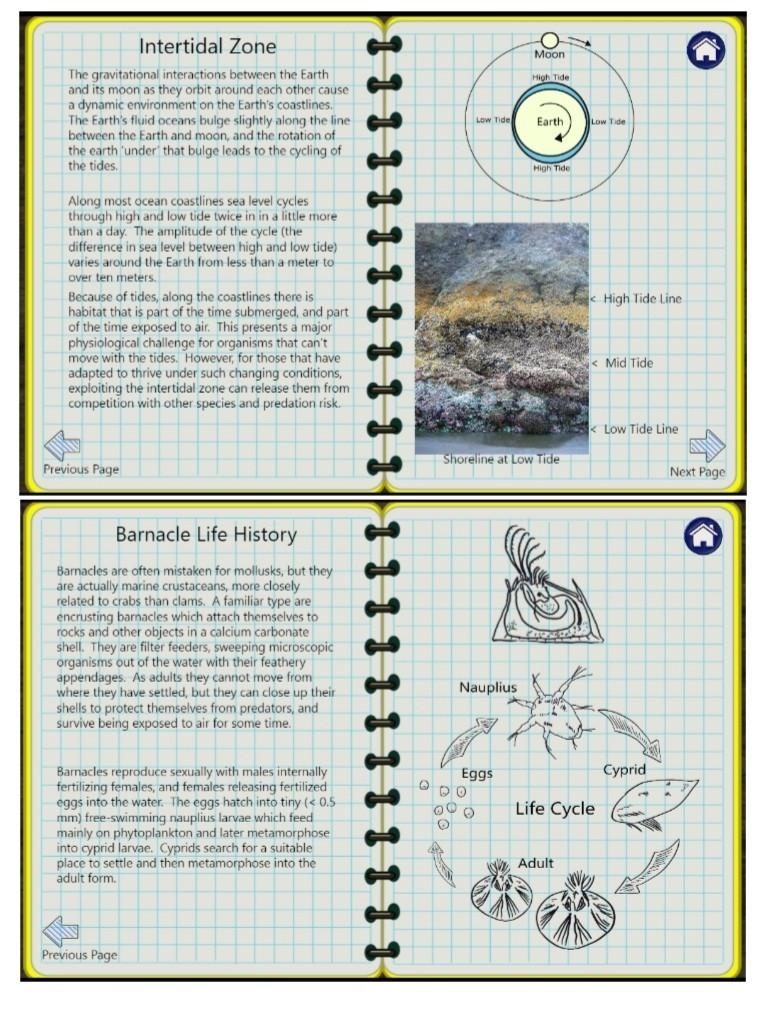 Intertidal Zone
The gravitational interactions between the Earth
and its moon as they orbit around each other cause
a dynamic environment on the Earth's coastlines.
The Earth's fluid oceans bulge slightly along the line
between the Earth and moon, and the rotation of
the earth 'under' that bulge leads to the cycling of
the tides.
Along most ocean coastlines sea level cycles
through high and low tide twice in in a little more
than a day. The amplitude of the cycle (the
difference in sea level between high and low tide)
varies around the Earth from less than a meter to
over ten meters.
Because of tides, along the coastlines there is
habitat that is part of the time submerged, and part
of the time exposed to air. This presents a major
physiological challenge for organisms that can't
move with the tides. However, for those that have
adapted to thrive under such changing conditions,
exploiting the intertidal zone can release them from
competition with other species and predation risk.
Previous Page
Moon
High Tide
Low Tide
Earth
Low Tide
High Tide
< High Tide Line
< Mid Tide
< Low Tide Line
Shoreline at Low Tide
Next Page
Barnacle Life History
Barnacles are often mistaken for mollusks, but they
are actually marine crustaceans, more closely
related to crabs than clams. A familiar type are
encrusting barnacles which attach themselves to
rocks and other objects in a calcium carbonate
shell. They are filter feeders, sweeping microscopic
organisms out of the water with their feathery
appendages. As adults they cannot move from
where they have settled, but they can close up their
shells to protect themselves from predators, and
survive being exposed to air for some time.
Barnacles reproduce sexually with males internally
fertilizing females, and females releasing fertilized
eggs into the water. The eggs hatch into tiny (< 0.5
mm) free-swimming nauplius larvae which feed
mainly on phytoplankton and later metamorphose
into cyprid larvae. Cyprids search for a suitable
place to settle and then metamorphose into the
adult form.
Previous Page
Nauplius
Eggs
Cyprid
Life Cycle
Adult